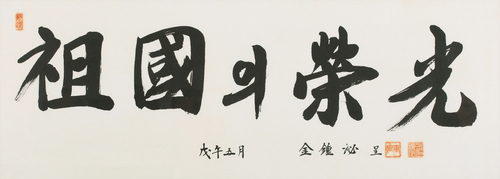 祖國의榮光
戊午五月 金鍾泌 呈